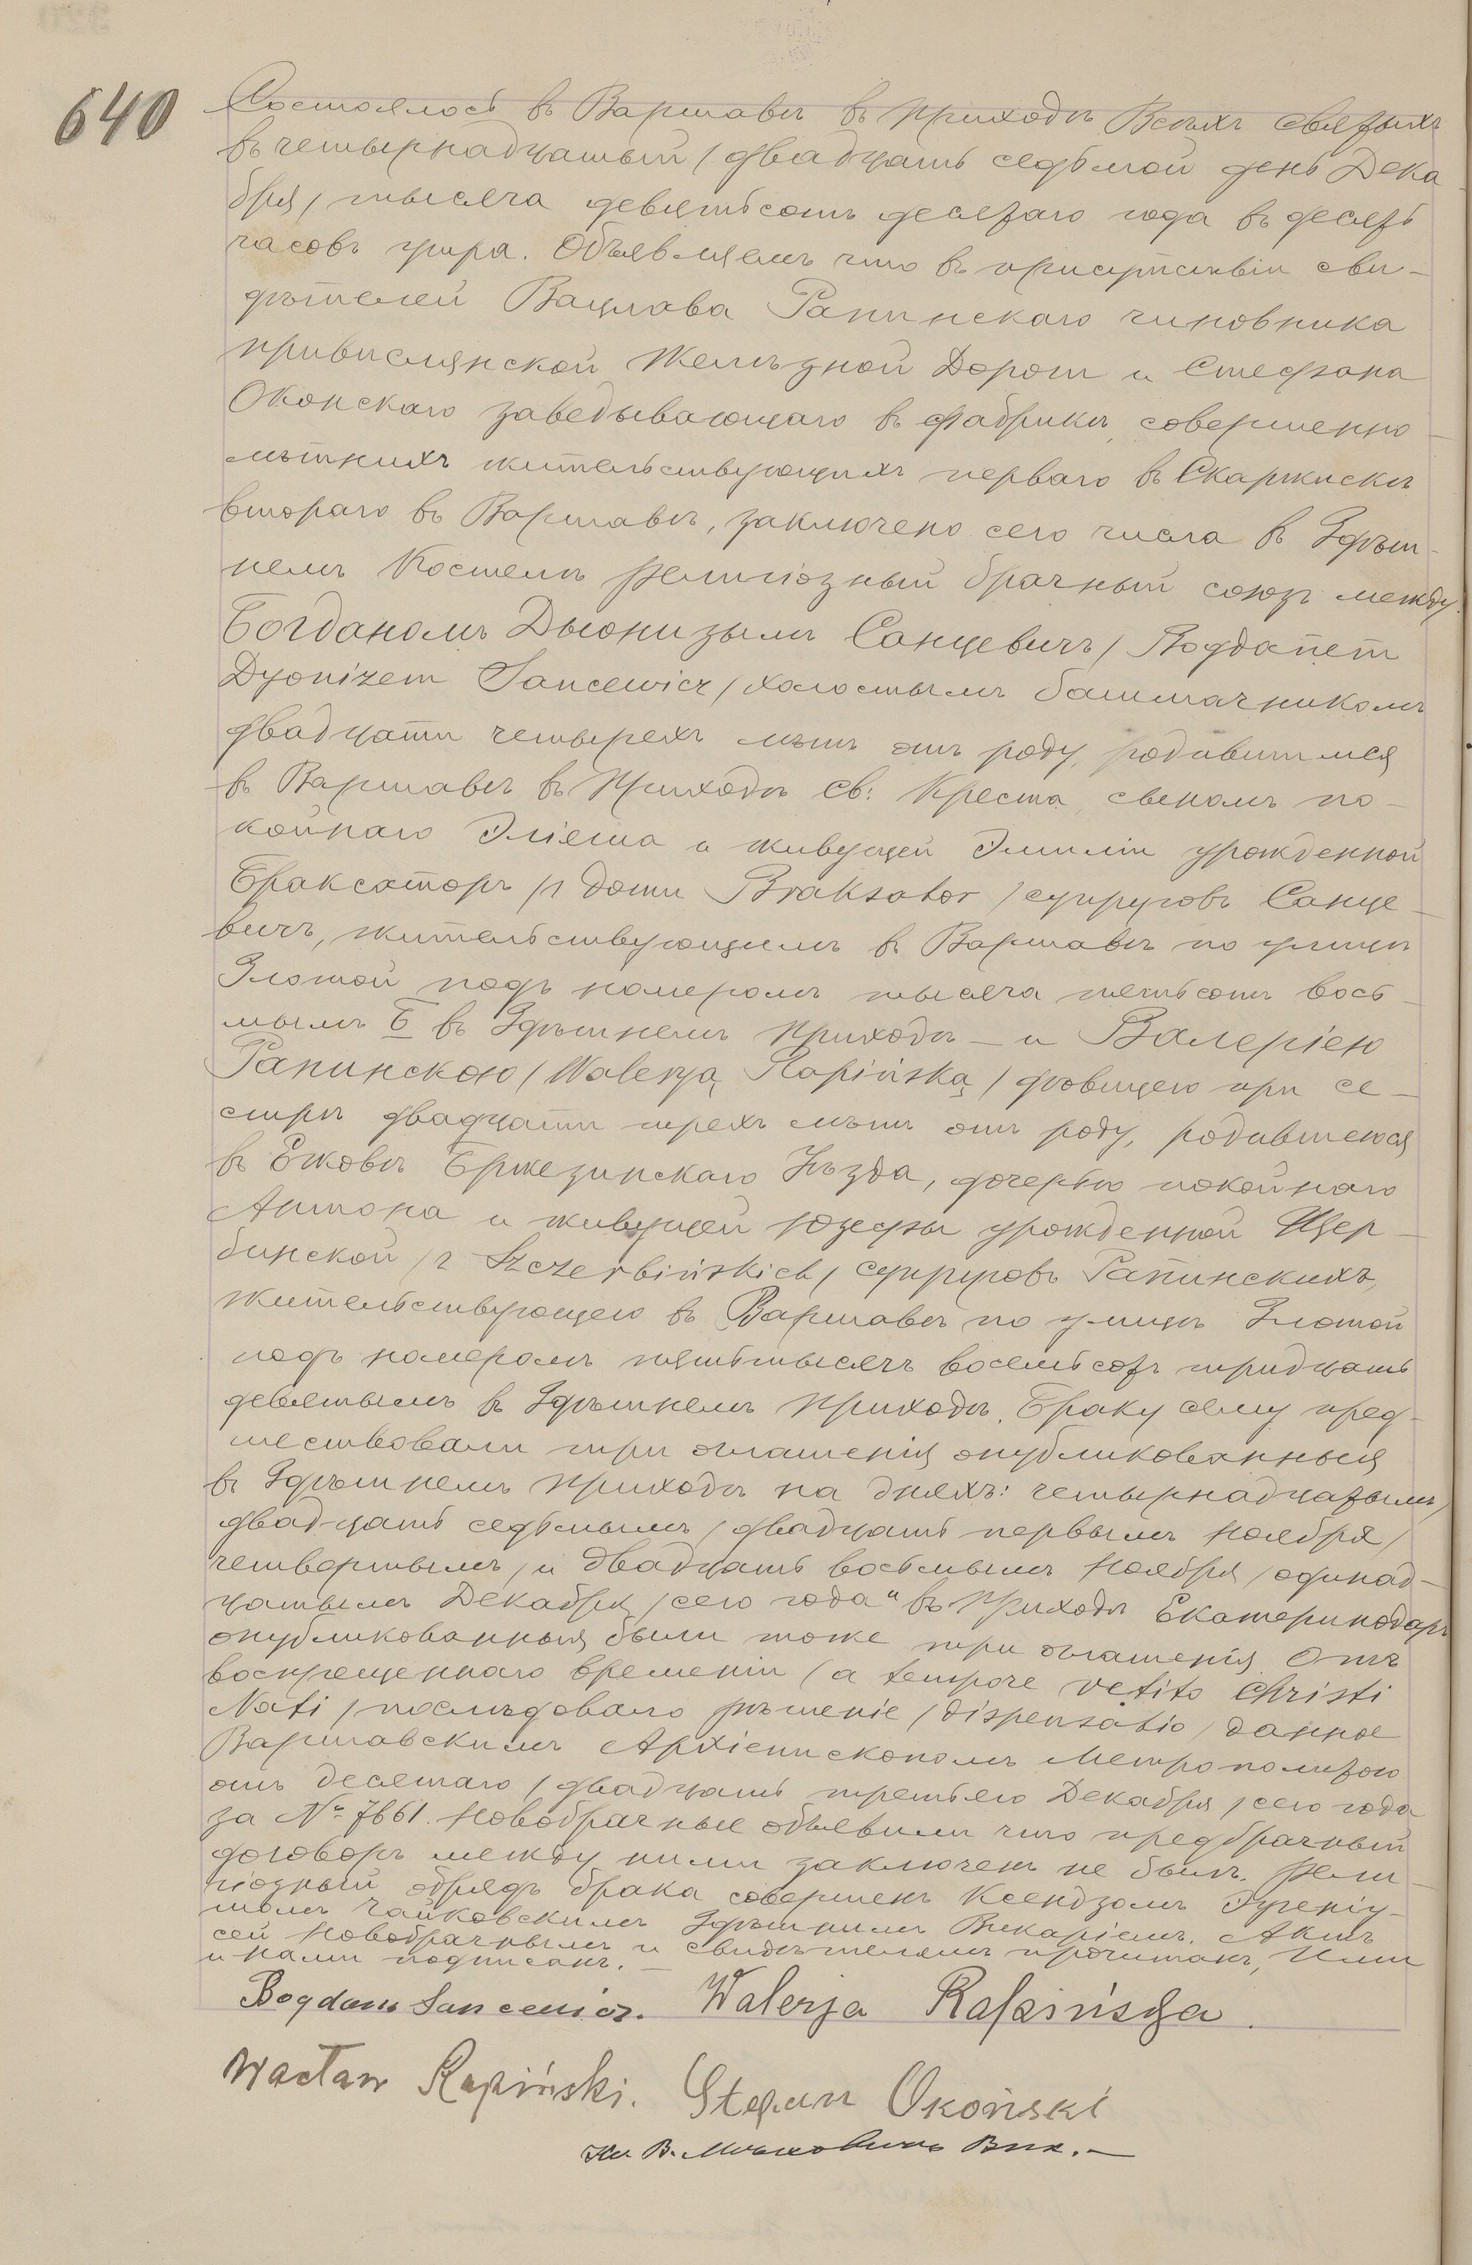 640
Состоялось въ Варшавѣ въ приходѣ Всѣхъ святыхъ
въ четырнадцатый / двадцать седьмой день Дека-
бря / тысяча девятьсотъ десятаго года въ десять
часовъ утра. Объявляемъ что въ присутствіи сви-
дѣтелей Вацлава Рапинскаго чиновника
привислянской Желѣзной Дороги и Стефана
Оконскаго заведывающаго въ фабрикѣ, совершенно-
лѣтнихъ жительствующихъ перваго въ Скаржискѣ
втораго въ Варшавѣ, заключено сего числа въ Здѣш-
немъ Костелѣ религіозный брачный союзъ между
Богданомъ Дыонизымъ Санцевичъ / Bogdanem
Dyonizem Sancewicz / холостымъ башмачникомъ
двадцати четырехъ лѣтъ отъ роду, родившимся
въ Варшавѣ въ приходѣ Св: Креста, сыномъ по-
койнаго Эліяша и живущей Эмиліи урожденной
Браксаторъ / z domu Braksator / супруговъ Санце-
вичъ, жительствующимъ въ Варшавѣ по улицѣ
Злотой подъ номеромъ тысяча пятьсотъ вось-
мымъ Б въ Здѣшнемъ приходѣ — и Валеріею
Рапинскою / Walerją Rapińską / дѣвицею при се-
стрѣ двадцати трехъ лѣтъ отъ роду, родившеюся
въ Ежовѣ Бржезинскаго Уѣзда, дочерью покойнаго
Антона и живущей Юзефы урожденной Щер-
бинской / z Szczerbińskich / супруговъ Рапинскихъ,
жительствующею въ Варшавѣ по улицѣ Злотой
подъ номеромъ пятьтысячъ восемьсотъ тридцать
девятымъ въ Здѣшнемъ приходѣ. Браку сему пред-
шествовали три оглашенія опубликованныя
въ Здѣшнемъ приходѣ на дняхъ: четырнадцатымъ /
двадцать седьмымъ / двадцать первымъ Ноября /
четвертымъ / и двадцать восьмымъ Ноября / одинад-
цатымъ Декабря / сего года " въ приходѣ Екатеринодаръ
опубликованныя были тоже три оглашенія. Отъ
воспрещеннаго времени / a tempore vetito Christi
Nati / послѣдовало рѣшеніе / dispensatio / данное
Варшавскимъ Архіепископомъ Метрополитою
отъ десятаго / двадцать третьяго Декабря / сего года
за № 7661. Новобрачные объявили что предбрачный
договоръ между ними заключенъ не былъ. Рели-
гіозный обрядъ брака совершенъ Ксендзомъ Эугеніу-
шомъ Чайковскимъ Здѣшнимъ Викаріемъ. Актъ
сей Новобрачнымъ и свидѣтелямъ прочитанъ, Ими
и нами подписанъ. —
Bogdan Sancewicz. Walerja Rapińska.
Wacław Rapiński. Stefan Okoński
Кс. В. Вик. —